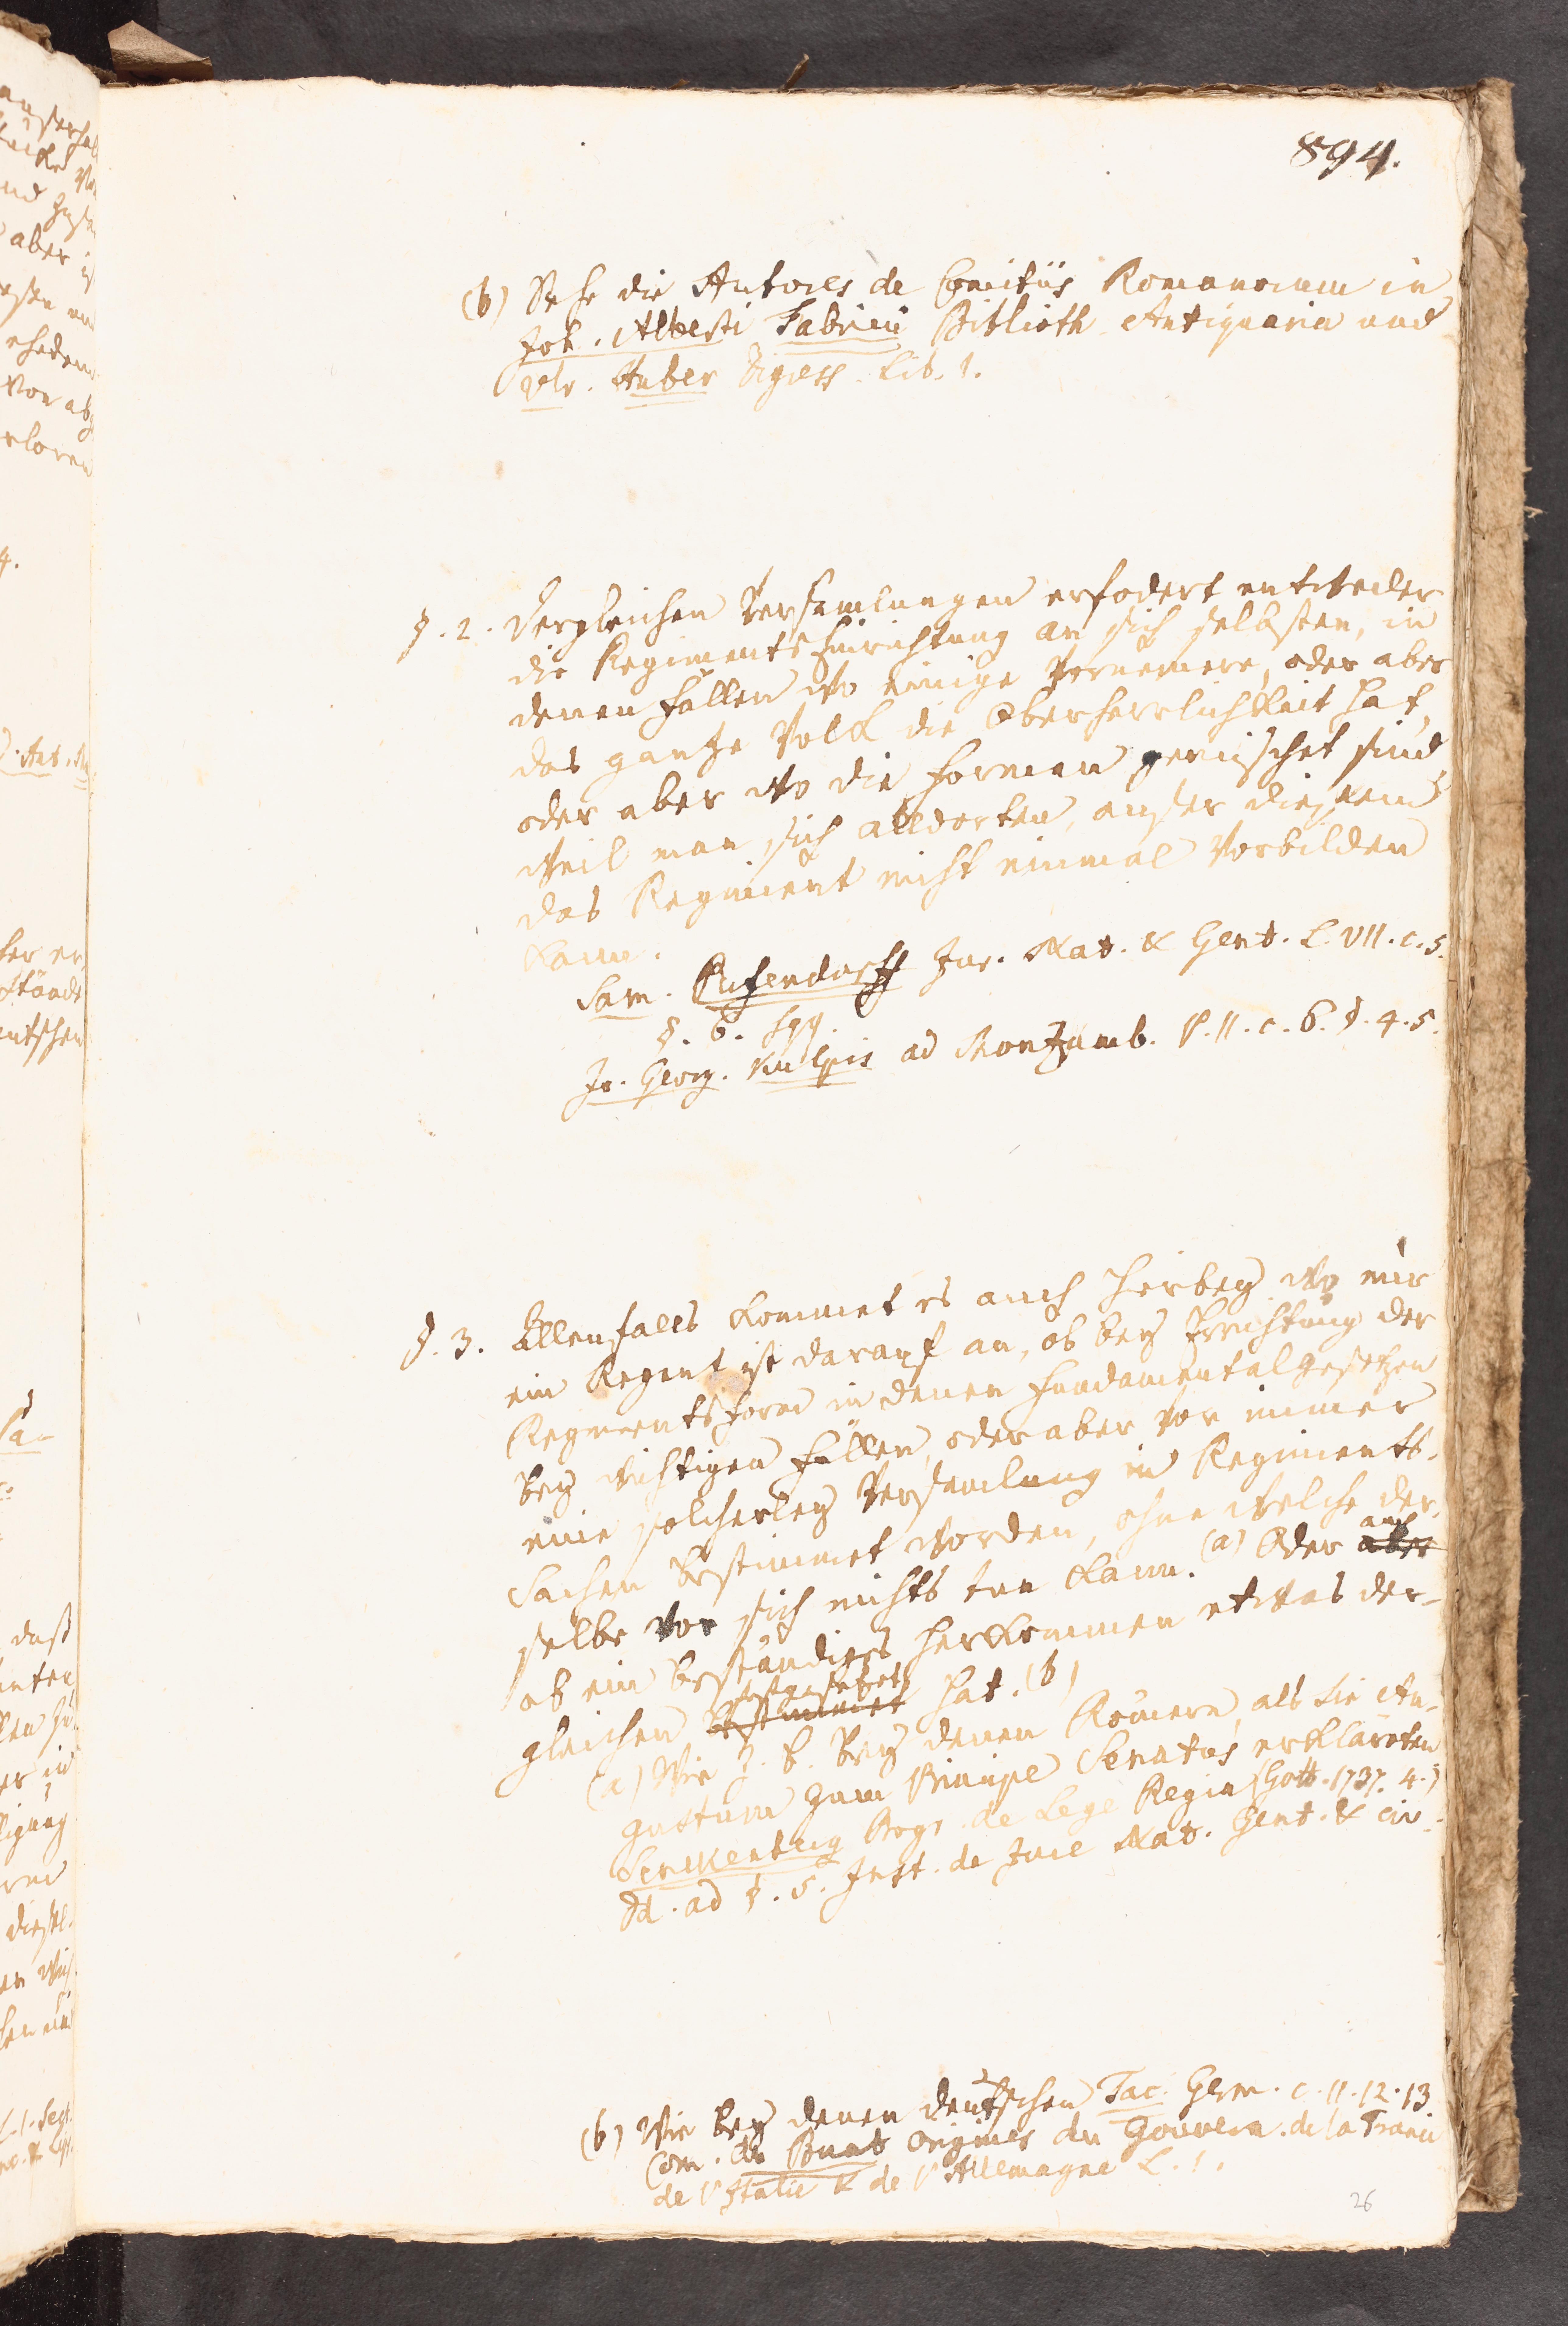 894.
(b) Sehe die Autores de Comitiis Romanorum in
Joh. Alberti Fabricii Biblioth. Antiquaria und
Ulr. Huber Digress. Lib. 1.
§. 2. Dergleichen Versamlungen erfodert entweder
die Regiments Einrichtung an sich selbsten, in
denen Fällen wo einige Vornemere, oder aber
das gantze Volk die Oberherrlichkeit hat,
oder aber wo die Formen gemischet sind,
weil man sich alldorten, ausser diesem
das Regiment nicht einmal vorbilden
kann.
Sam. Pufendorff Jur. Nat. & Gent. L. VII. c. 5.
§. 6. sqq.
Jo. Georg. Kulpis ad Monzamb. P. II. c. 6. §. 4. 5.
§. 3. Allenfalls kommet es auch hierbey wo nur
ein Regent ist darauf an, ob bey Errichtung der
Regimentsform in denen Fundamentalgesetzen
bey wichtigen Fällen, oder aber vor immer
eine solcherley Versamlung in Regiments-
Sachen bestimmet worden, ohne welche der-
selbe vor sich nichts tun kann. (a) Oder aber auch
ob ein beständiges Herkommen etwas der-
gleichen bestimmet festgesetzet hat. (b)
(a) Wie z. E. bey denen Römern, als sie Au-
gustum zum Principe Senatus erklärten
Senkenberg Progr. de Lege Regia (Gött. 1737. 4.)
Id. ad §. 5. Inst. de Jure Nat. Gent. & Civ.
(b) Wie bey denen deutschen Tac. Germ. c. 11. 12. 13
Com. de Buat Origines du Gouvern. de la France
de l'Italie & de l'Allemagne L. 1.
26